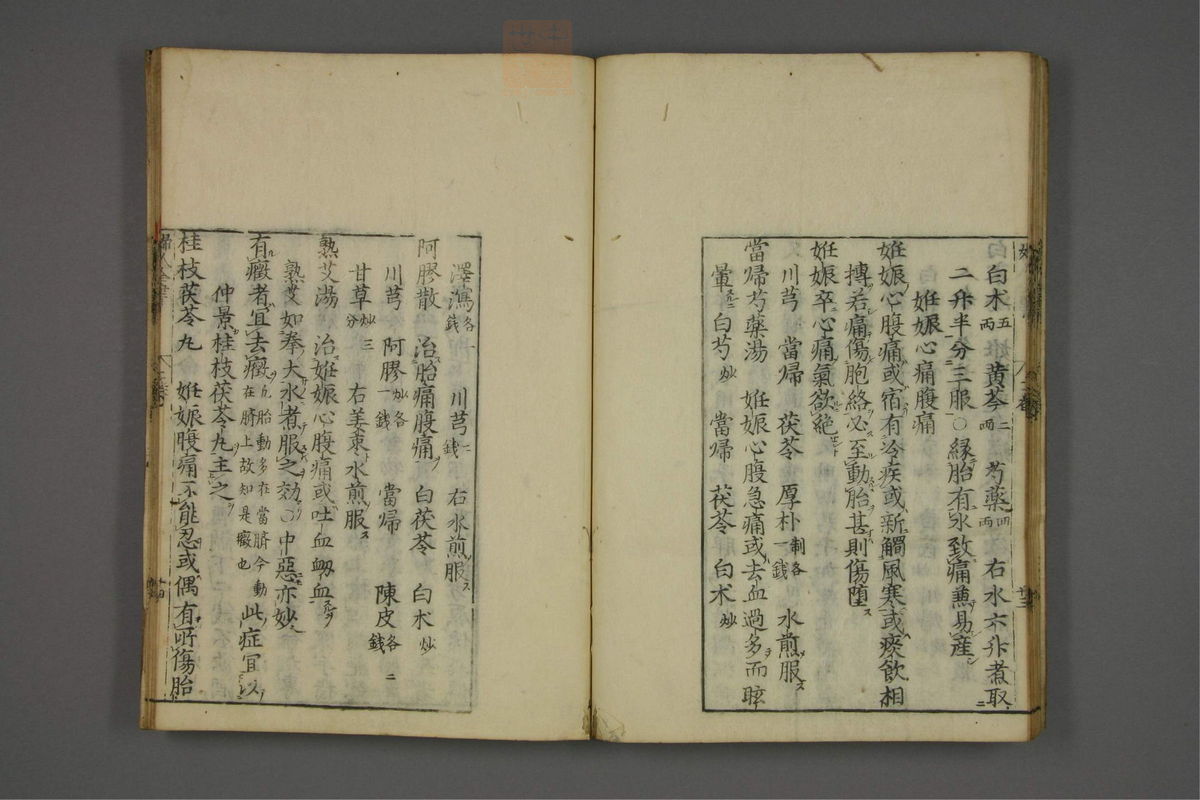 白朮五兩 黄芩二兩 芍薬四兩 右水六升煮取
二升半分三服○縁胎有水致痛兼易産
姙娠心痛腹痛
姙娠心腹痛或宿有冷疾或新觸風寒或痰飲相
搏若痛傷胞絡必至動胎甚則傷墮
姙娠卒心痛氣欲絶
川芎 當帰 茯苓 厚朴制各一錢 水煎服
當帰芍薬湯 姙娠心腹急痛或去血過多而眩
暈 白芍炒 當帰 茯苓 白朮炒
澤瀉各錢 川芎二錢 右水煎服
阿膠散 治胎痛腹痛 白茯苓 白朮炒
川芎 阿膠炒各一錢 當帰 陳皮各二錢
甘草炒三分 右姜棗水煎服
熟艾湯 治姙娠心腹痛或吐血衂血
熟艾如拳大水者服之効○中惡亦妙
有癥者宜去癥凡胎動多在當臍今動在臍上故知是癥也 此症宜以
仲景桂枝茯苓丸主之
桂枝茯苓丸 姙娠腹痛不能忍或偶有所傷胎